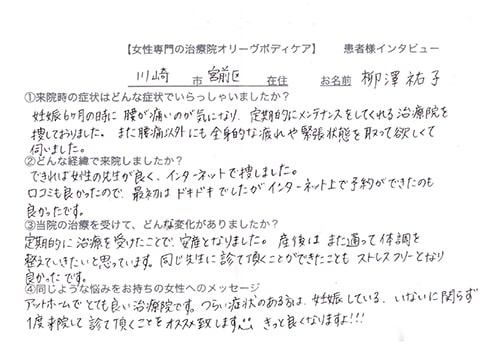 【女性専門の治療院オリーヴボディケア】 患者様インタビュー
川崎 市 宮前区 在住 お名前 柳澤祐子
①来院時の症状はどんな症状でいらっしゃいましたか？
妊娠6ヶ月の時に腰が痛いのが気になり、定期的にメンテナンスをしてくれる治療院を
捜しておりました。また腰痛以外にも全身的な疲れや緊張状態を取って欲しくて
伺いました。
②どんな経緯で来院しましたか？
できれば女性の先生が良く、インターネットで捜しました。
口コミも良かったので、最初はドキドキでしたがインターネット上で予約ができたのも
良かったです。
③当院の治療を受けて、どんな変化がありましたか？
定期的に治療を受けたことで、安産となりました。産後はまた通って体調を
整えていきたいと思っています。同じ先生に診て頂くことができたこともストレスフリーとなり
良かったです。
④同じような悩みをお持ちの女性へのメッセージ
アットホームでとても良い治療院です。つらい症状のある方は、妊娠している、いないに関らず
1度来院して診て頂くことをオススメ致します きっと良くなりますよ!!!